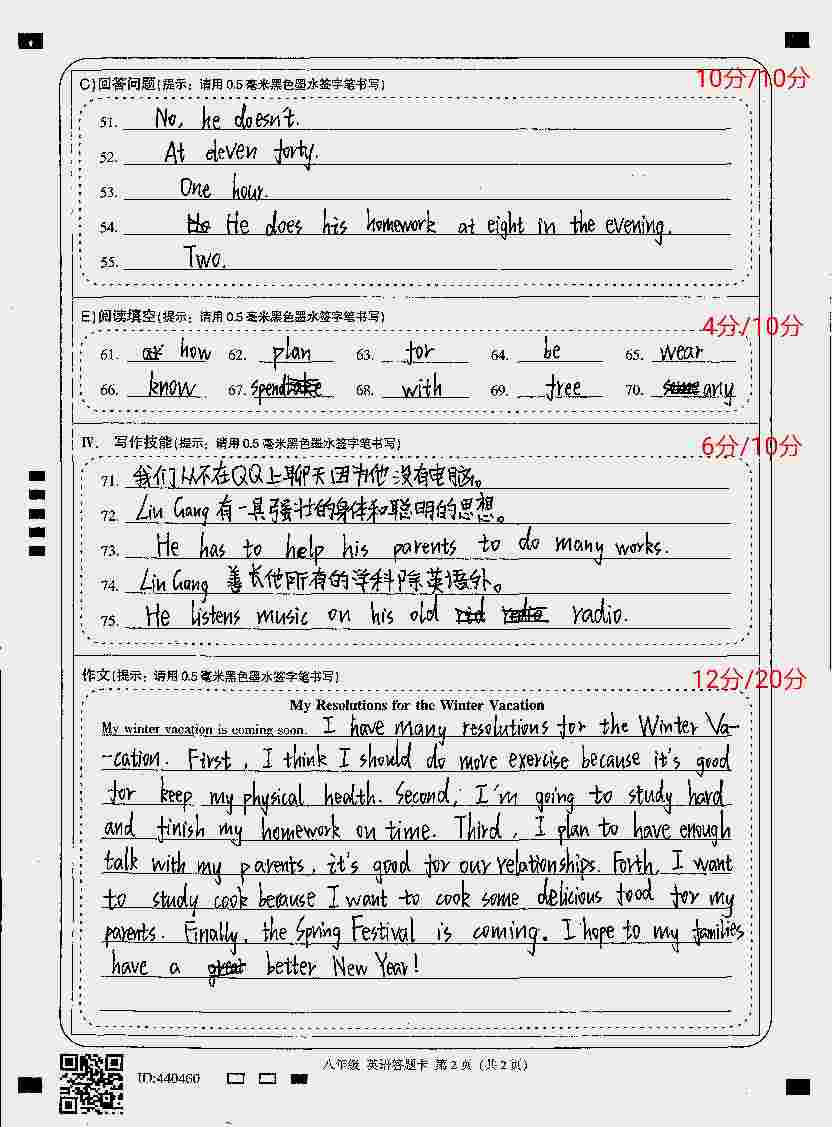 10分/10分
C)回答问题(提示：请用0.5毫米黑色墨水签字笔书写)
51. No, he doesn't.
52. At eleven forty.
53. One hour.
54. He does his homework at eight in the evening.
55. Two.
4分/10分
E)阅读填空(提示：请用0.5毫米黑色墨水签字笔书写)
61. how 62. plan 63. for 64. be 65. wear
66. know 67. spend 68. with 69. free 70. any
6分/10分
IV. 写作技能(提示：请用0.5毫米黑色墨水签字笔书写)
71. 我们从不在QQ上聊天因为他没有电脑。
72. Liu Gang 有一具强壮的身体和聪明的思想。
73. He has to help his parents to do many works.
74. Liu Gang 善长他所有的学科除英语外。
75. He listens music on his old radio.
12分/20分
作文(提示：请用0.5毫米黑色墨水签字笔书写)
My Resolutions for the Winter Vacation
My winter vacation is coming soon. I have many resolutions for the Winter Va-
-cation. First, I think I should do more exercise because it's good
for keep my physical health. Second, I'm going to study hard
and finish my homework on time. Third, I plan to have enough
talk with my parents, it's good for our relationships. Forth, I want
to study cook because I want to cook some delicious food for my
parents. Finally, the Spring Festival is coming. I hope to my families
have a better New Year!
八年级 英语答题卡 第2页 (共2页)
ID:440460